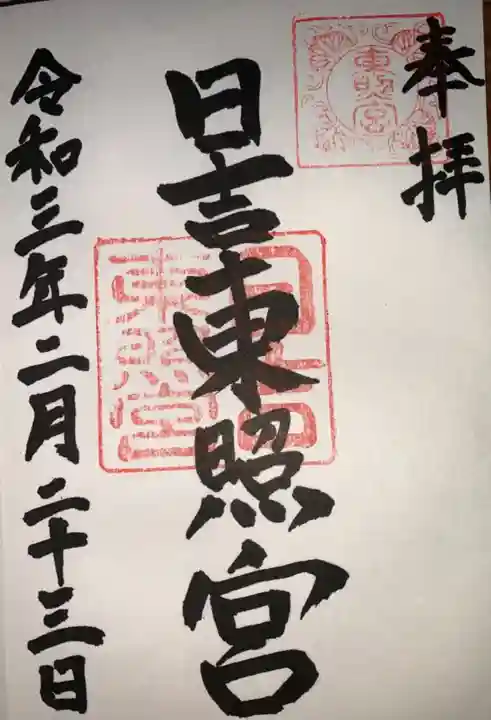 奉拝
東照宮
日吉東照宮
日吉東照宮
令和三年二月二十三日